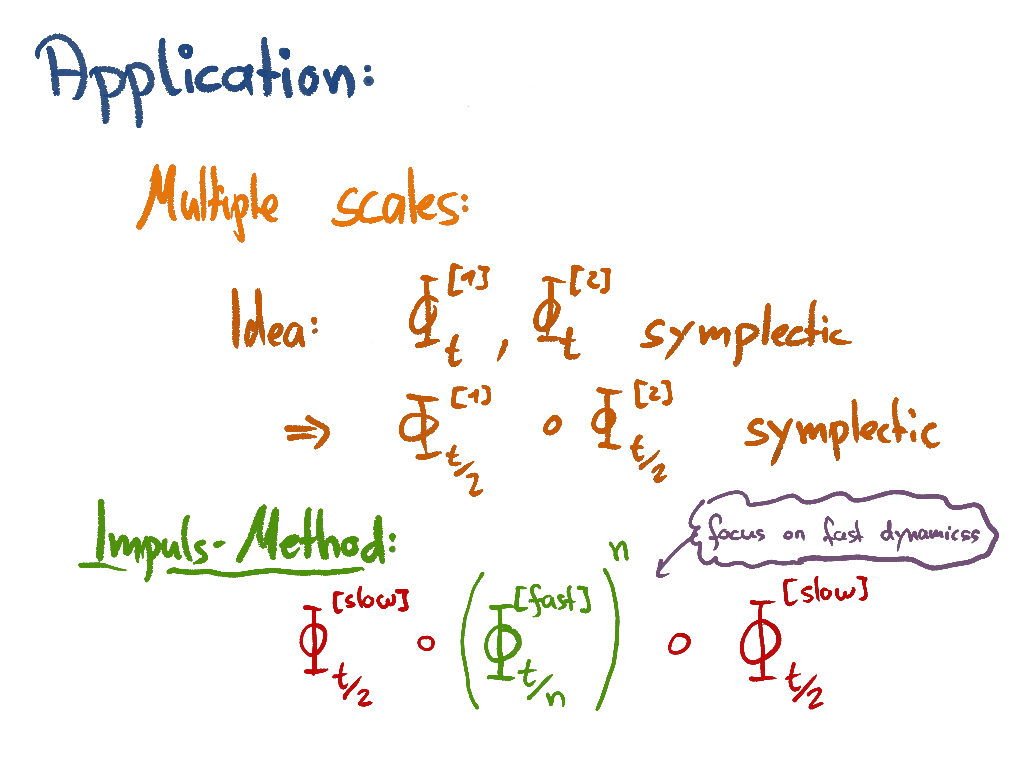 Application:
Multiple scales:
Idea: Φ_t^[1], Φ_t^[2] symplectic
⇒ Φ_{t/2}^[1] ∘ Φ_{t/2}^[2] symplectic
Impuls-Method:
focus on fast dynamicss
Φ_{t/2}^[slow] ∘ (Φ_{t/n}^[fast])^n ∘ Φ_{t/2}^[slow]